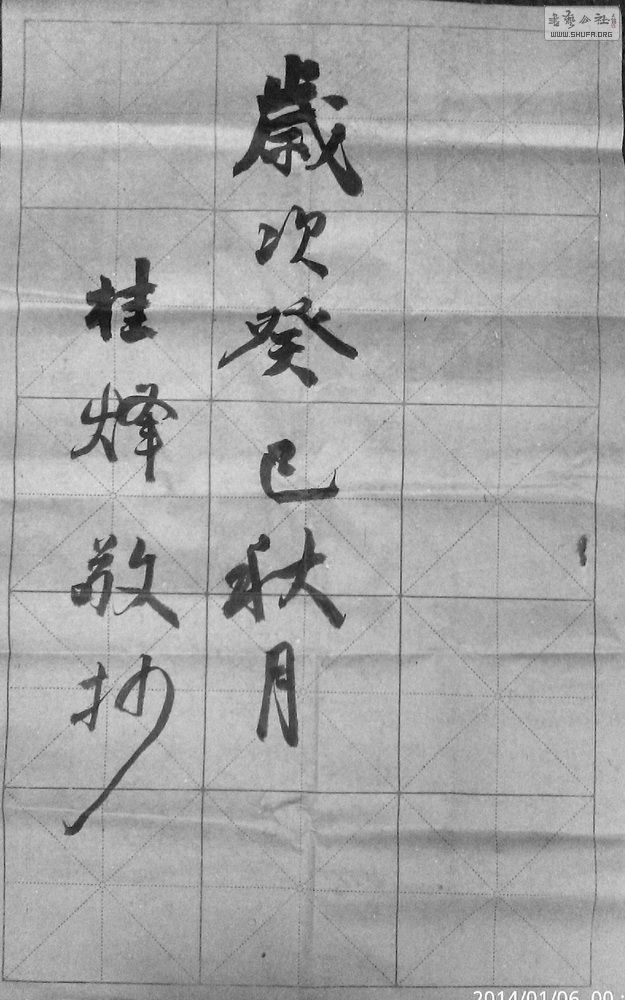 歲次癸巳秋月
桂烽敬抄
書藝公社
WWW.SHUFA.ORG
2014/01/06 00